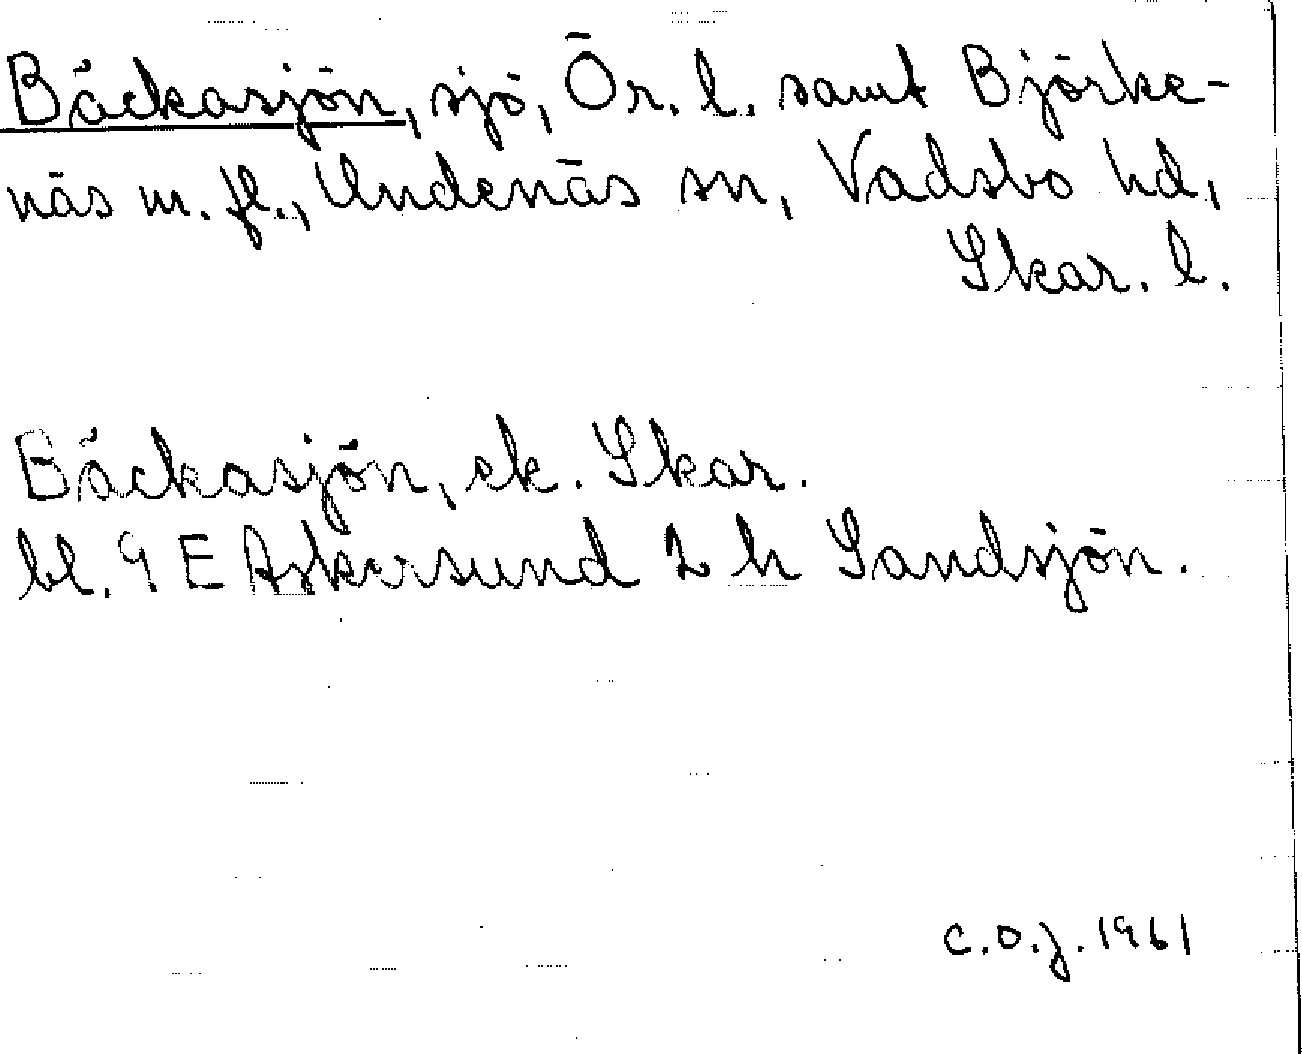 Bäckasjön, sjö, Ör. l. samt Björke-
näs m. fl., Undenäs sn, Vadsbo hd,
Skar. l.
Bäckasjön, ek. Skar.
bl. 9 E Askersund 2 h Sandsjön.
C.O.J. 1961